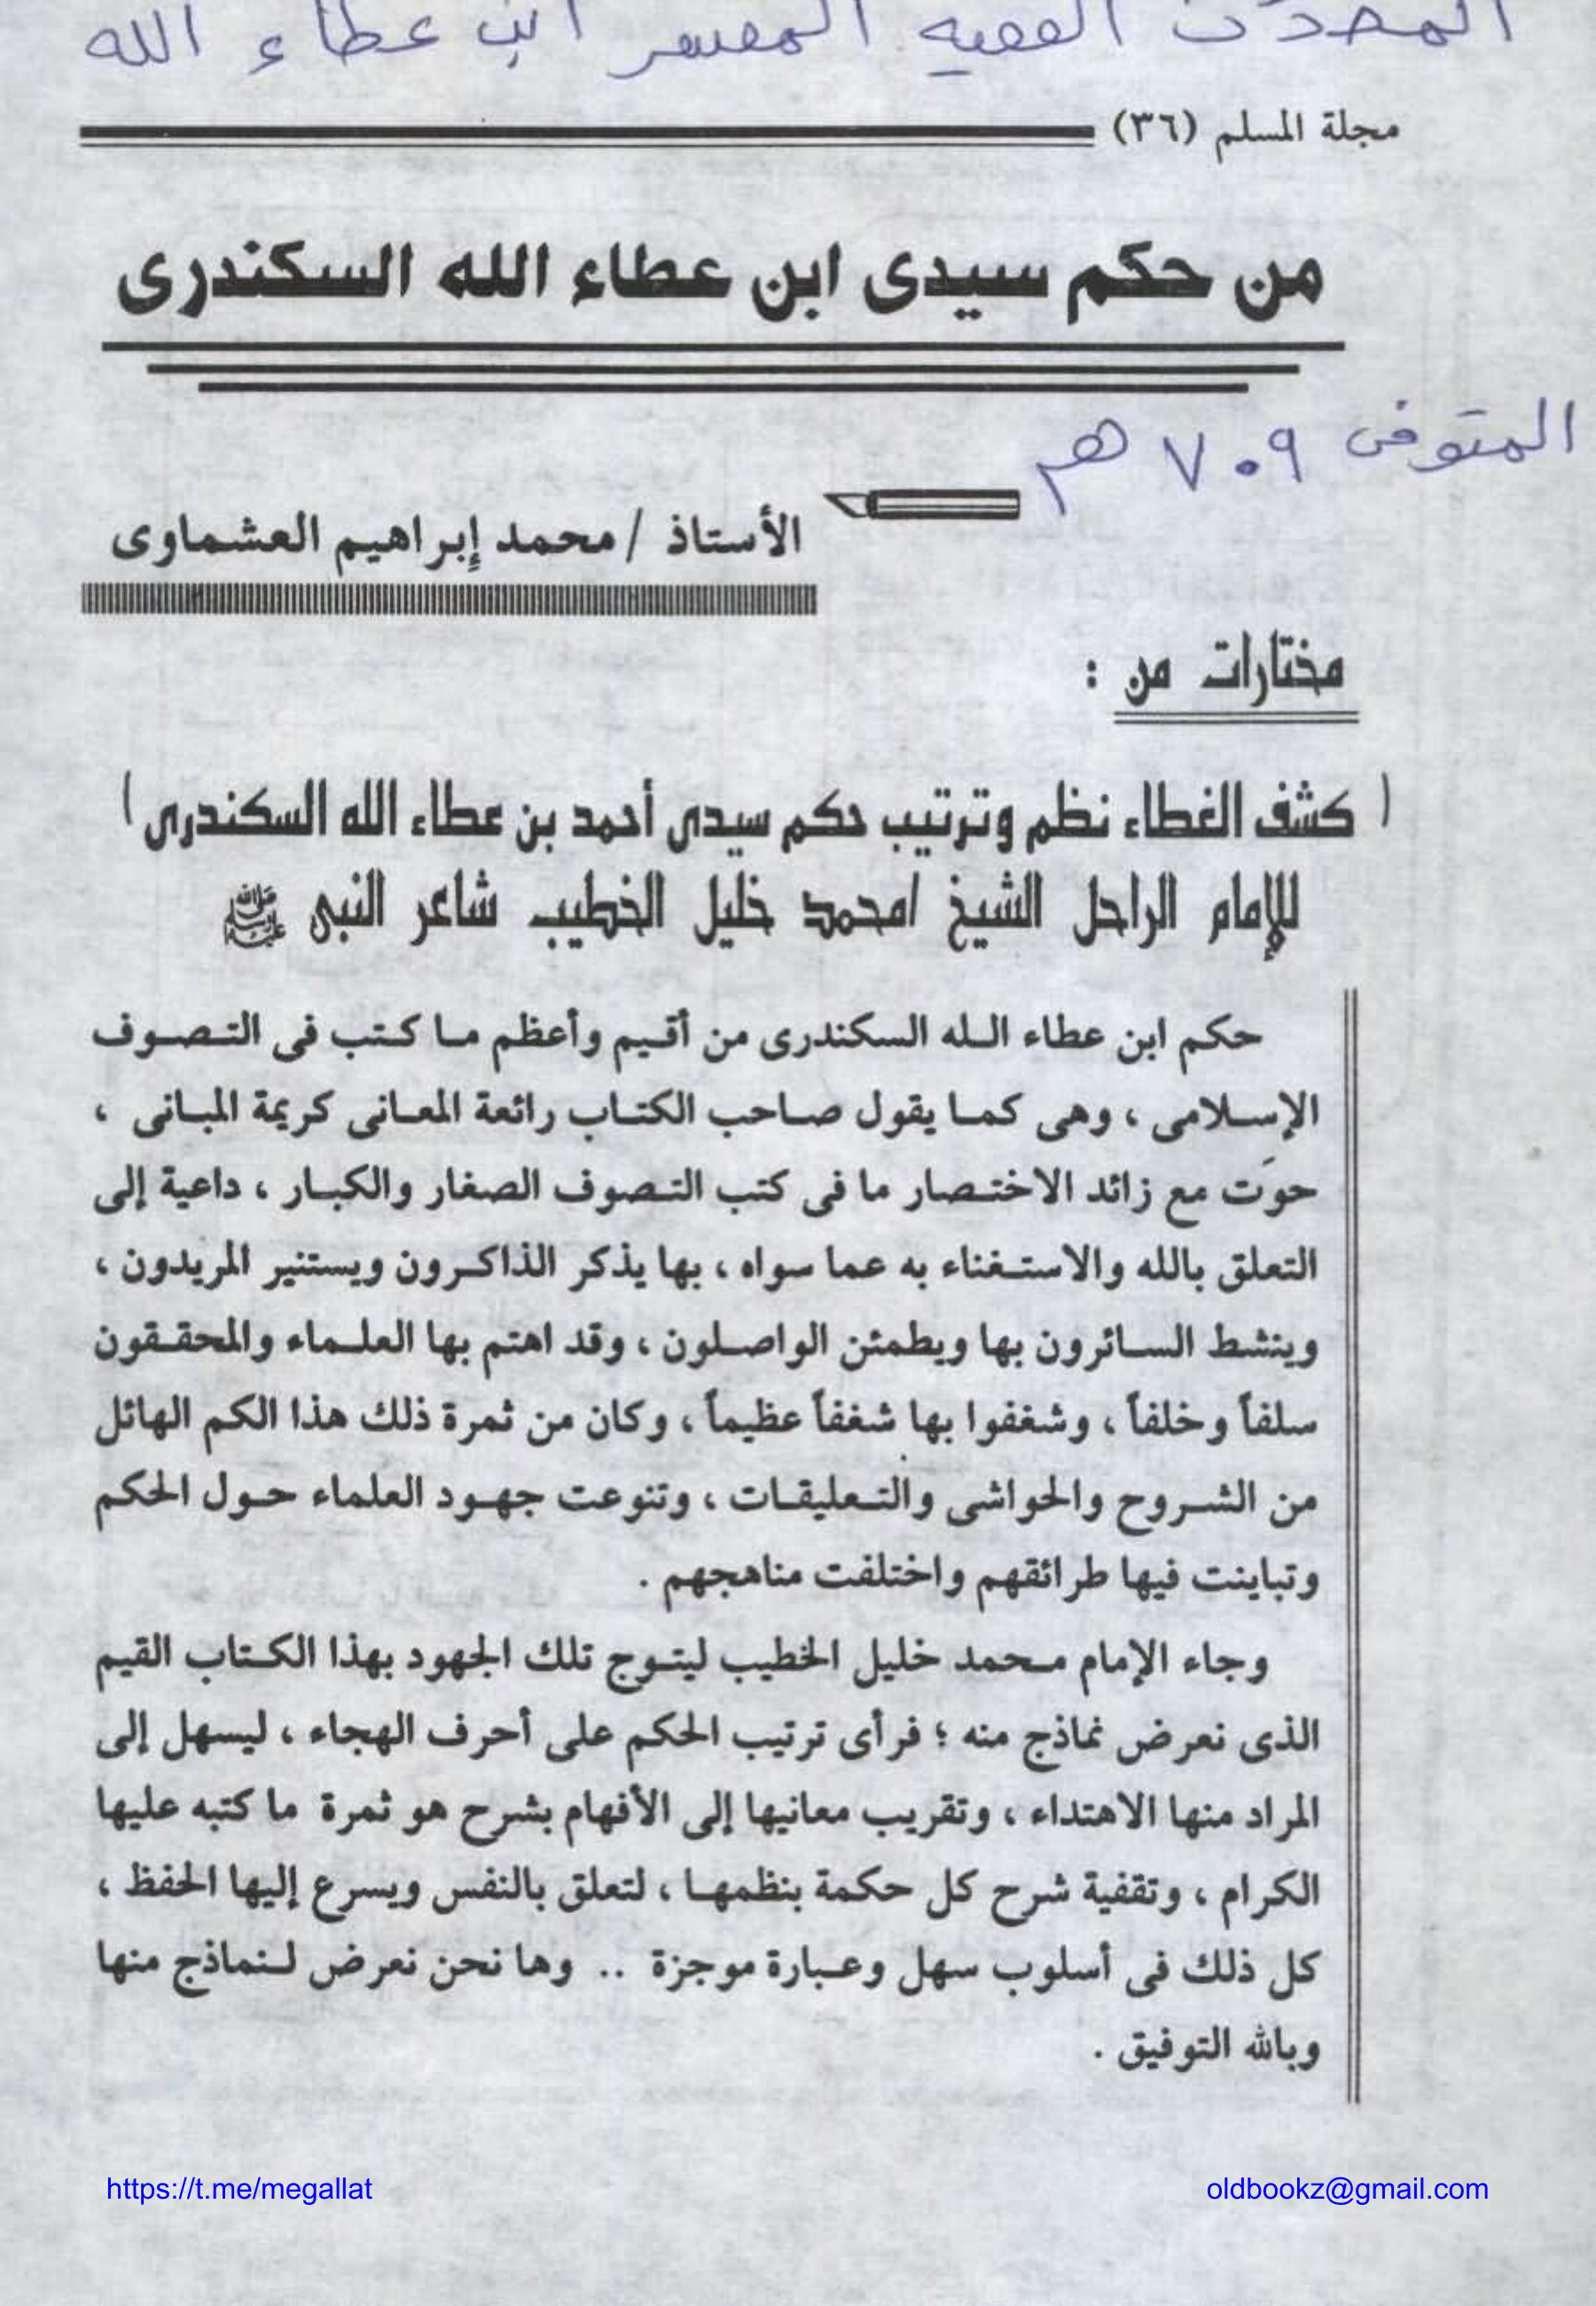 المحدث الفقيه المفسر ابن عطاء الله
مجلة المسلم (٣٦)
من حكم سيدى ابن عطاء الله السكندرى
المتوفى ٧٠٩ هـ
الأستاذ / محمد إبراهيم العشماوى
مختارات من :
( كشف الغطاء نظم وترتيب حكم سيدى أحمد بن عطاء الله السكندرى )
للإمام الراحل الشيخ /محمد خليل الخطيب شاعر النبى ﷺ
حكم ابن عطاء الله السكندرى من أقيم وأعظم ما كتب فى التصوف
الإسلامى ، وهى كما يقول صاحب الكتاب رائعة المعانى كريمة المبانى ،
حوَت مع زائد الاختصار ما فى كتب التصوف الصغار والكبار ، داعية إلى
التعلق بالله والاستغناء به عما سواه ، بها يذكر الذاكرون ويستنير المريدون ،
وينشط السائرون بها ويطمئن الواصلون ، وقد اهتم بها العلماء والمحققون
سلفاً وخلفاً ، وشغفوا بها شغفاً عظيماً ، وكان من ثمرة ذلك هذا الكم الهائل
من الشروح والحواشى والتعليقات ، وتنوعت جهود العلماء حول الحكم
وتباينت فيها طرائقهم واختلفت مناهجهم .
وجاء الإمام محمد خليل الخطيب ليتوج تلك الجهود بهذا الكتاب القيم
الذى نعرض نماذج منه ؛ فرأى ترتيب الحكم على أحرف الهجاء ، ليسهل إلى
المراد منها الاهتداء ، وتقريب معانيها إلى الأفهام بشرح هو ثمرة ما كتبه عليها
الكرام ، وتقفية شرح كل حكمة بنظمها ، لتعلق بالنفس ويسرع إليها الحفظ ،
كل ذلك فى أسلوب سهل وعبارة موجزة .. وها نحن نعرض لنماذج منها
وبالله التوفيق .
https://t.me/megallat
oldbookz@gmail.com